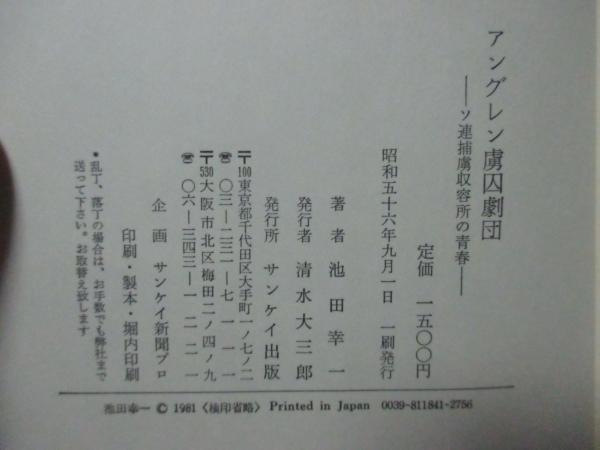 アングレン虜囚劇団
――ソ連捕虜収容所の青春――
定価 一五〇〇円
昭和五十六年九月一日 一刷発行
著者 池田幸一
発行者 清水大三郎
発行所 サンケイ出版
〒100東京都千代田区大手町一ノ七ノ二
☎〇三―二三一―七一一一
〒530大阪市北区梅田二ノ四ノ九
☎〇六―三四三―一二二一
企画 サンケイ新聞プロ
印刷・製本・堀内印刷
●乱丁、落丁の場合は、お手数でも弊社まで
送って下さい。お取替え致します
池田幸一 © 1981〈検印省略〉Printed in Japan 0039-811841-2756